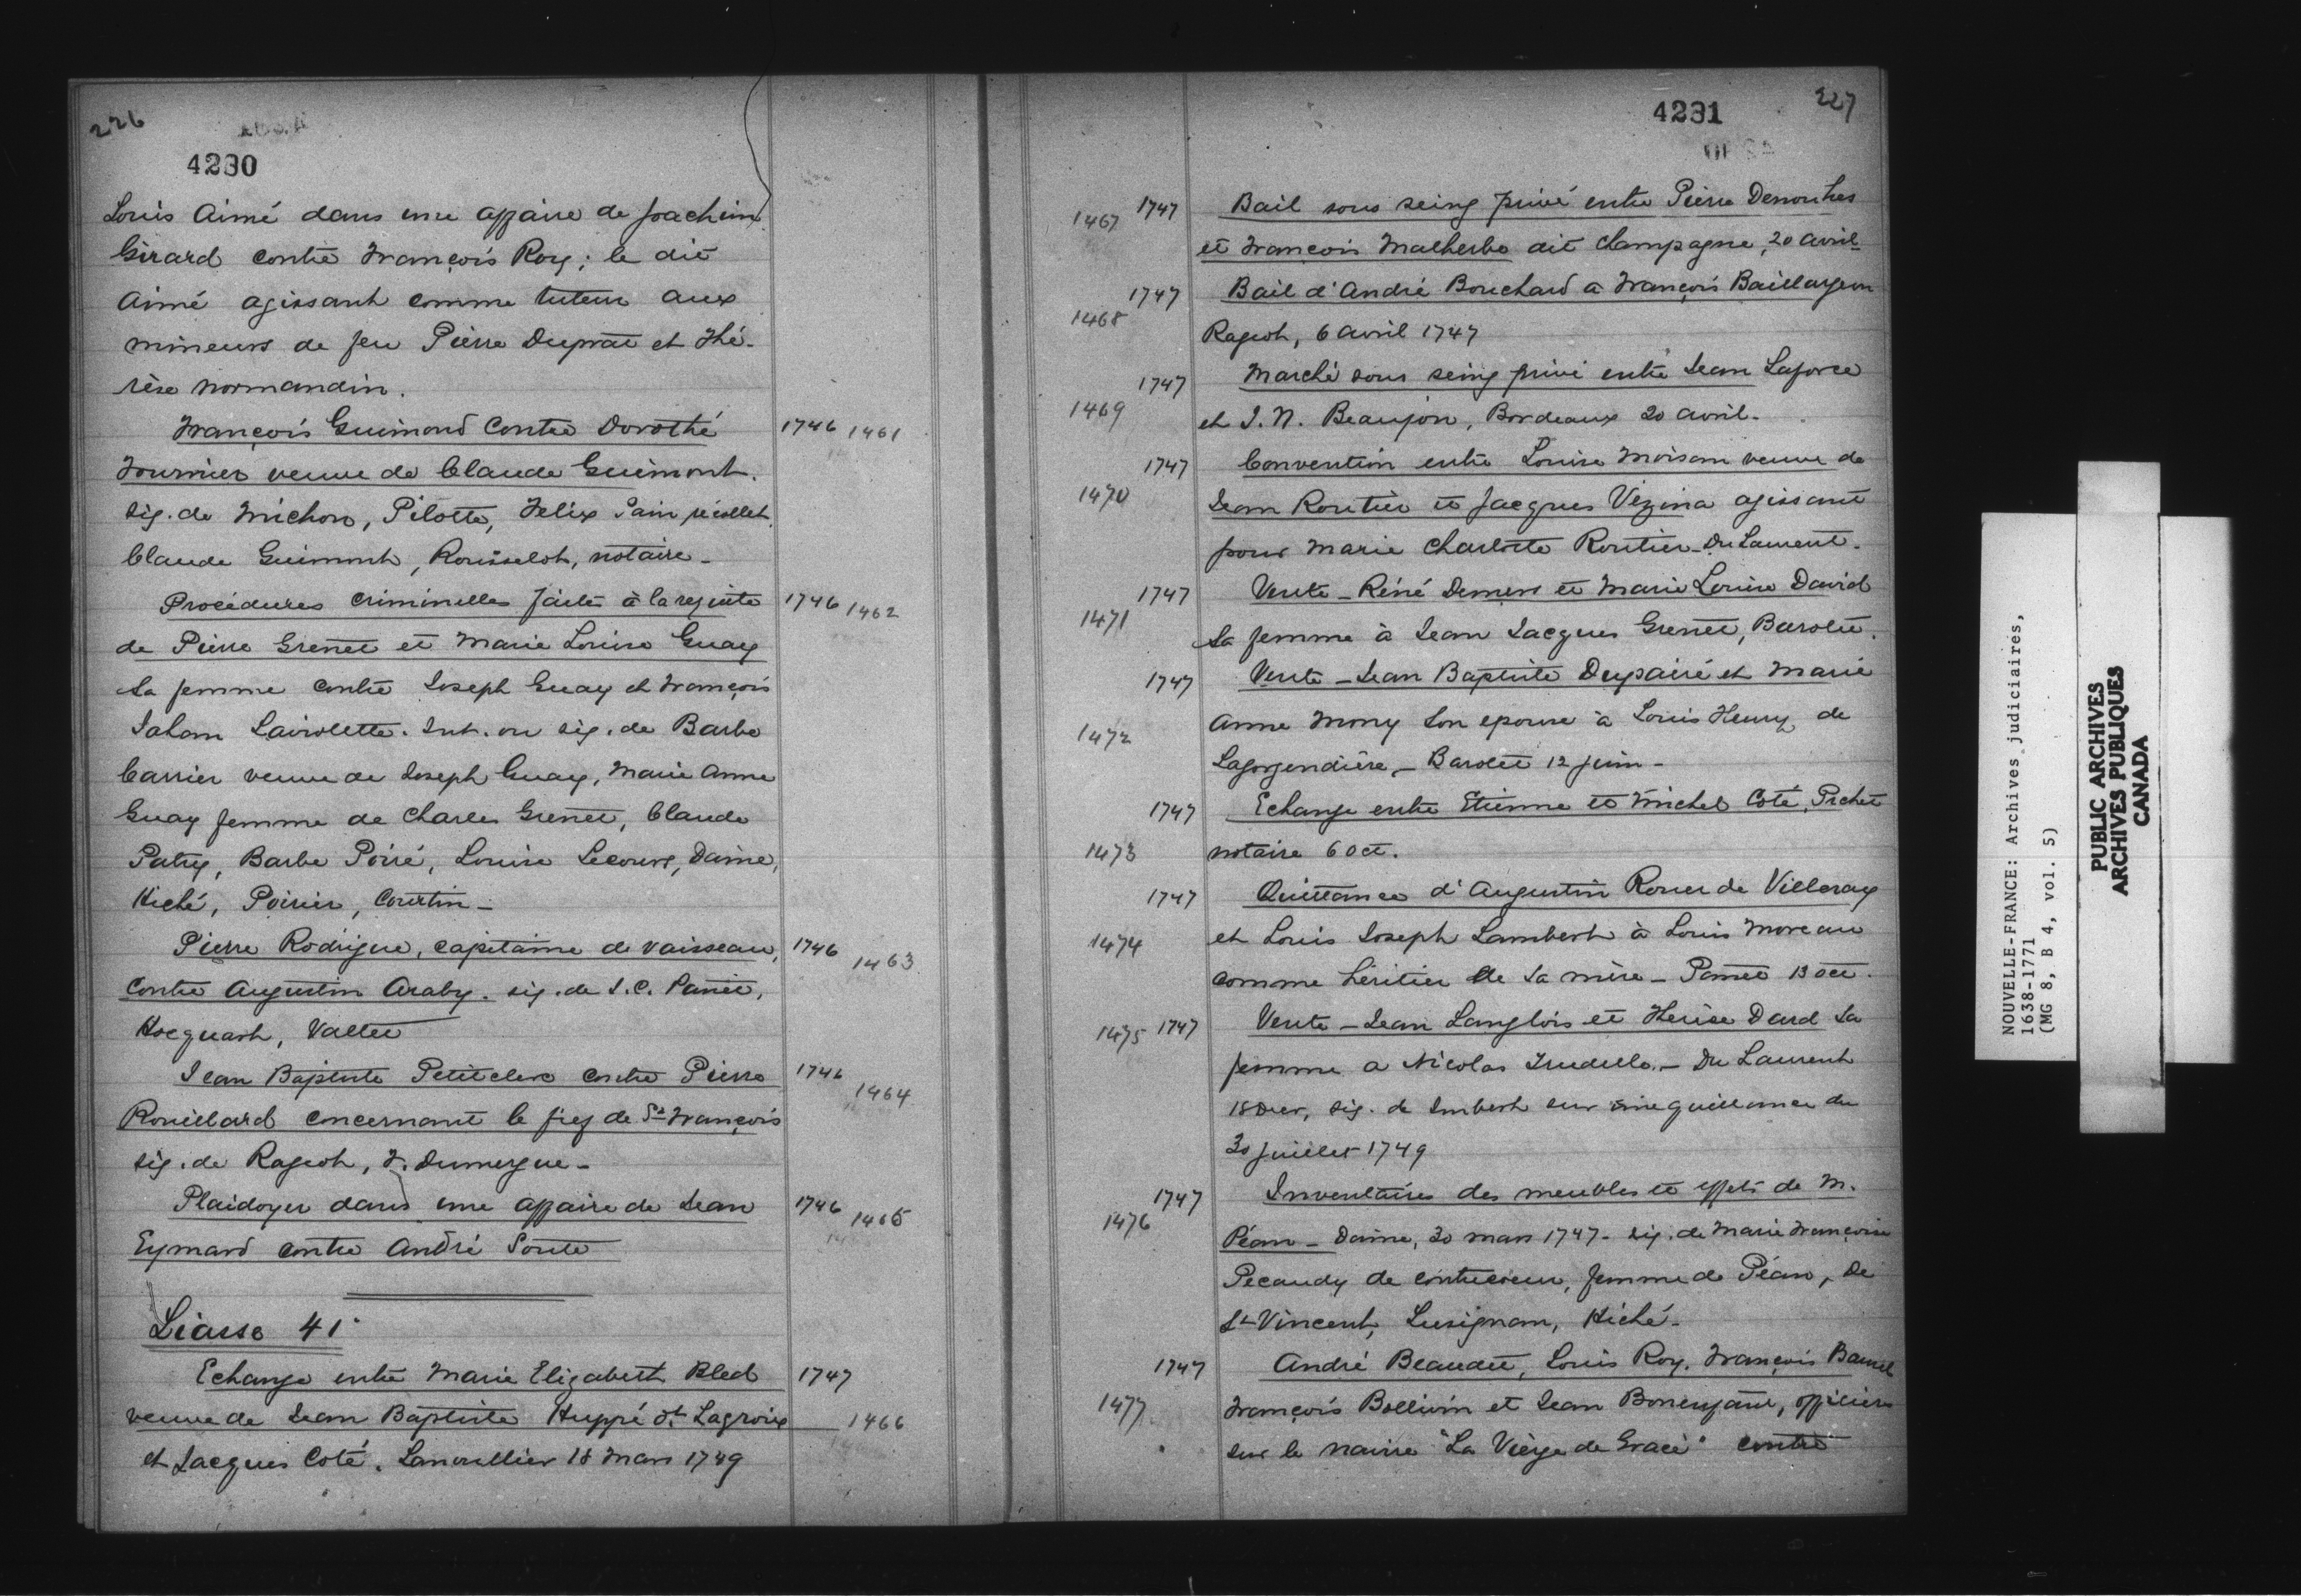 226
4230
Louis Aimé dans une affaire de Joachim
Girard contre François Roy; le dit
Aimé agissant comme tuteur aux
mineurs de feu Pierre Duprat et Thé-
rèse Normandin.
François Guimond contre Dorothé 1746 1461
Fournier veuve de Claude Guimont.
sig. de Michon, Pilotte, Félix Pain récollet,
Claude Guimont, Rousselot, notaire -
Procédures criminelles faites à la requête 1746 1462
de Pierre Grenet et Marie Louise Guay
sa femme contre Joseph Guay et François
Jahan Laviolette. Int. ou sig. de Barbe
Carrier veuve de Joseph Guay, Marie Anne
Guay femme de Charles Grenet, Claude
Patry, Barbe Poiré, Louise Lecours, Daine,
Hiché, Poirier, Courtin -
Pierre Rodrigue, capitaine de vaisseau, 1746 1463
contre Augustin Araby. sig. de J. C. Panet,
Hocquart, Vallée
Jean Baptiste Petitclerc contre Pierre 1746 1464
Rouillard concernant le fief de St François
sig. de Rageot, F. Dumergue -
Plaidoyer dans une affaire de Jean 1746 1465
Eymard contre André Soute
Liasse 41
Echange entre Marie Elizabeth Bled 1747
veuve de Jean Baptiste Huppé dt Lagroix 1466
et Jacques Coté. Lanoullier 18 Mars 1749
227
4231
1467 1747 Bail sous seing privé entre Pierre Denoutres
et François Malherbe dit Champagne, 20 avril
1747 Bail d'André Bouchard a François Baillargeon
1468 Rageot, 6 avril 1747
1747 Marché sous seing privé entre Jean Laforce
1469 et J. N. Beaujon, Bordeaux 20 avril -
1747 Convention entre Louise Moisan veuve de
1470 Jean Routier et Jacques Vézina agissant
pour Marie Charlotte Routier - Du Laurent -
1747 Vente - Réné Demers et Marie Louise David
1471 sa femme à Jean Jacques Grenet, Barolet.
1747 Vente - Jean Baptiste Dupairé et Marie
1472 Anne Mony son epouse à Louis Henry de
Lagorgendière, - Barolet 12 juin -
1747 Echange entre Etienne et Michel Coté, Pichet
1473 notaire 6 oct.
1747 Quittance d'Augustin Rouer de Villeray
1474 et Louis Joseph Lambert à Louis Moreau
comme héritier de sa mère - Panet 13 oct.
1475 1747 Vente - Jean Langlois et Thérèse Dard sa
femme a Nicolas Trudelle. - Du Laurent
18 Dec, sig. de Imbert sur une quittance du
30 juillet 1749
1747 Inventaires des meubles et effets de M.
1476 Péan - Daine, 30 mars 1747 - sig. de Marie Françoise
Pecaudy de contrecoeur, femme de Péan, De
St Vincent, Lusignan, Hiché -
1747 André Beaudet, Louis Roy, François Barret
1477 François Bollivin et Jean Bonenfant, officiers
sur le navire "La Vièrge de Grace" contre
NOUVELLE-FRANCE: Archives judiciaires,
1638-1771
(MG 8, B 4, vol. 5)
PUBLIC ARCHIVES
ARCHIVES PUBLIQUES
CANADA